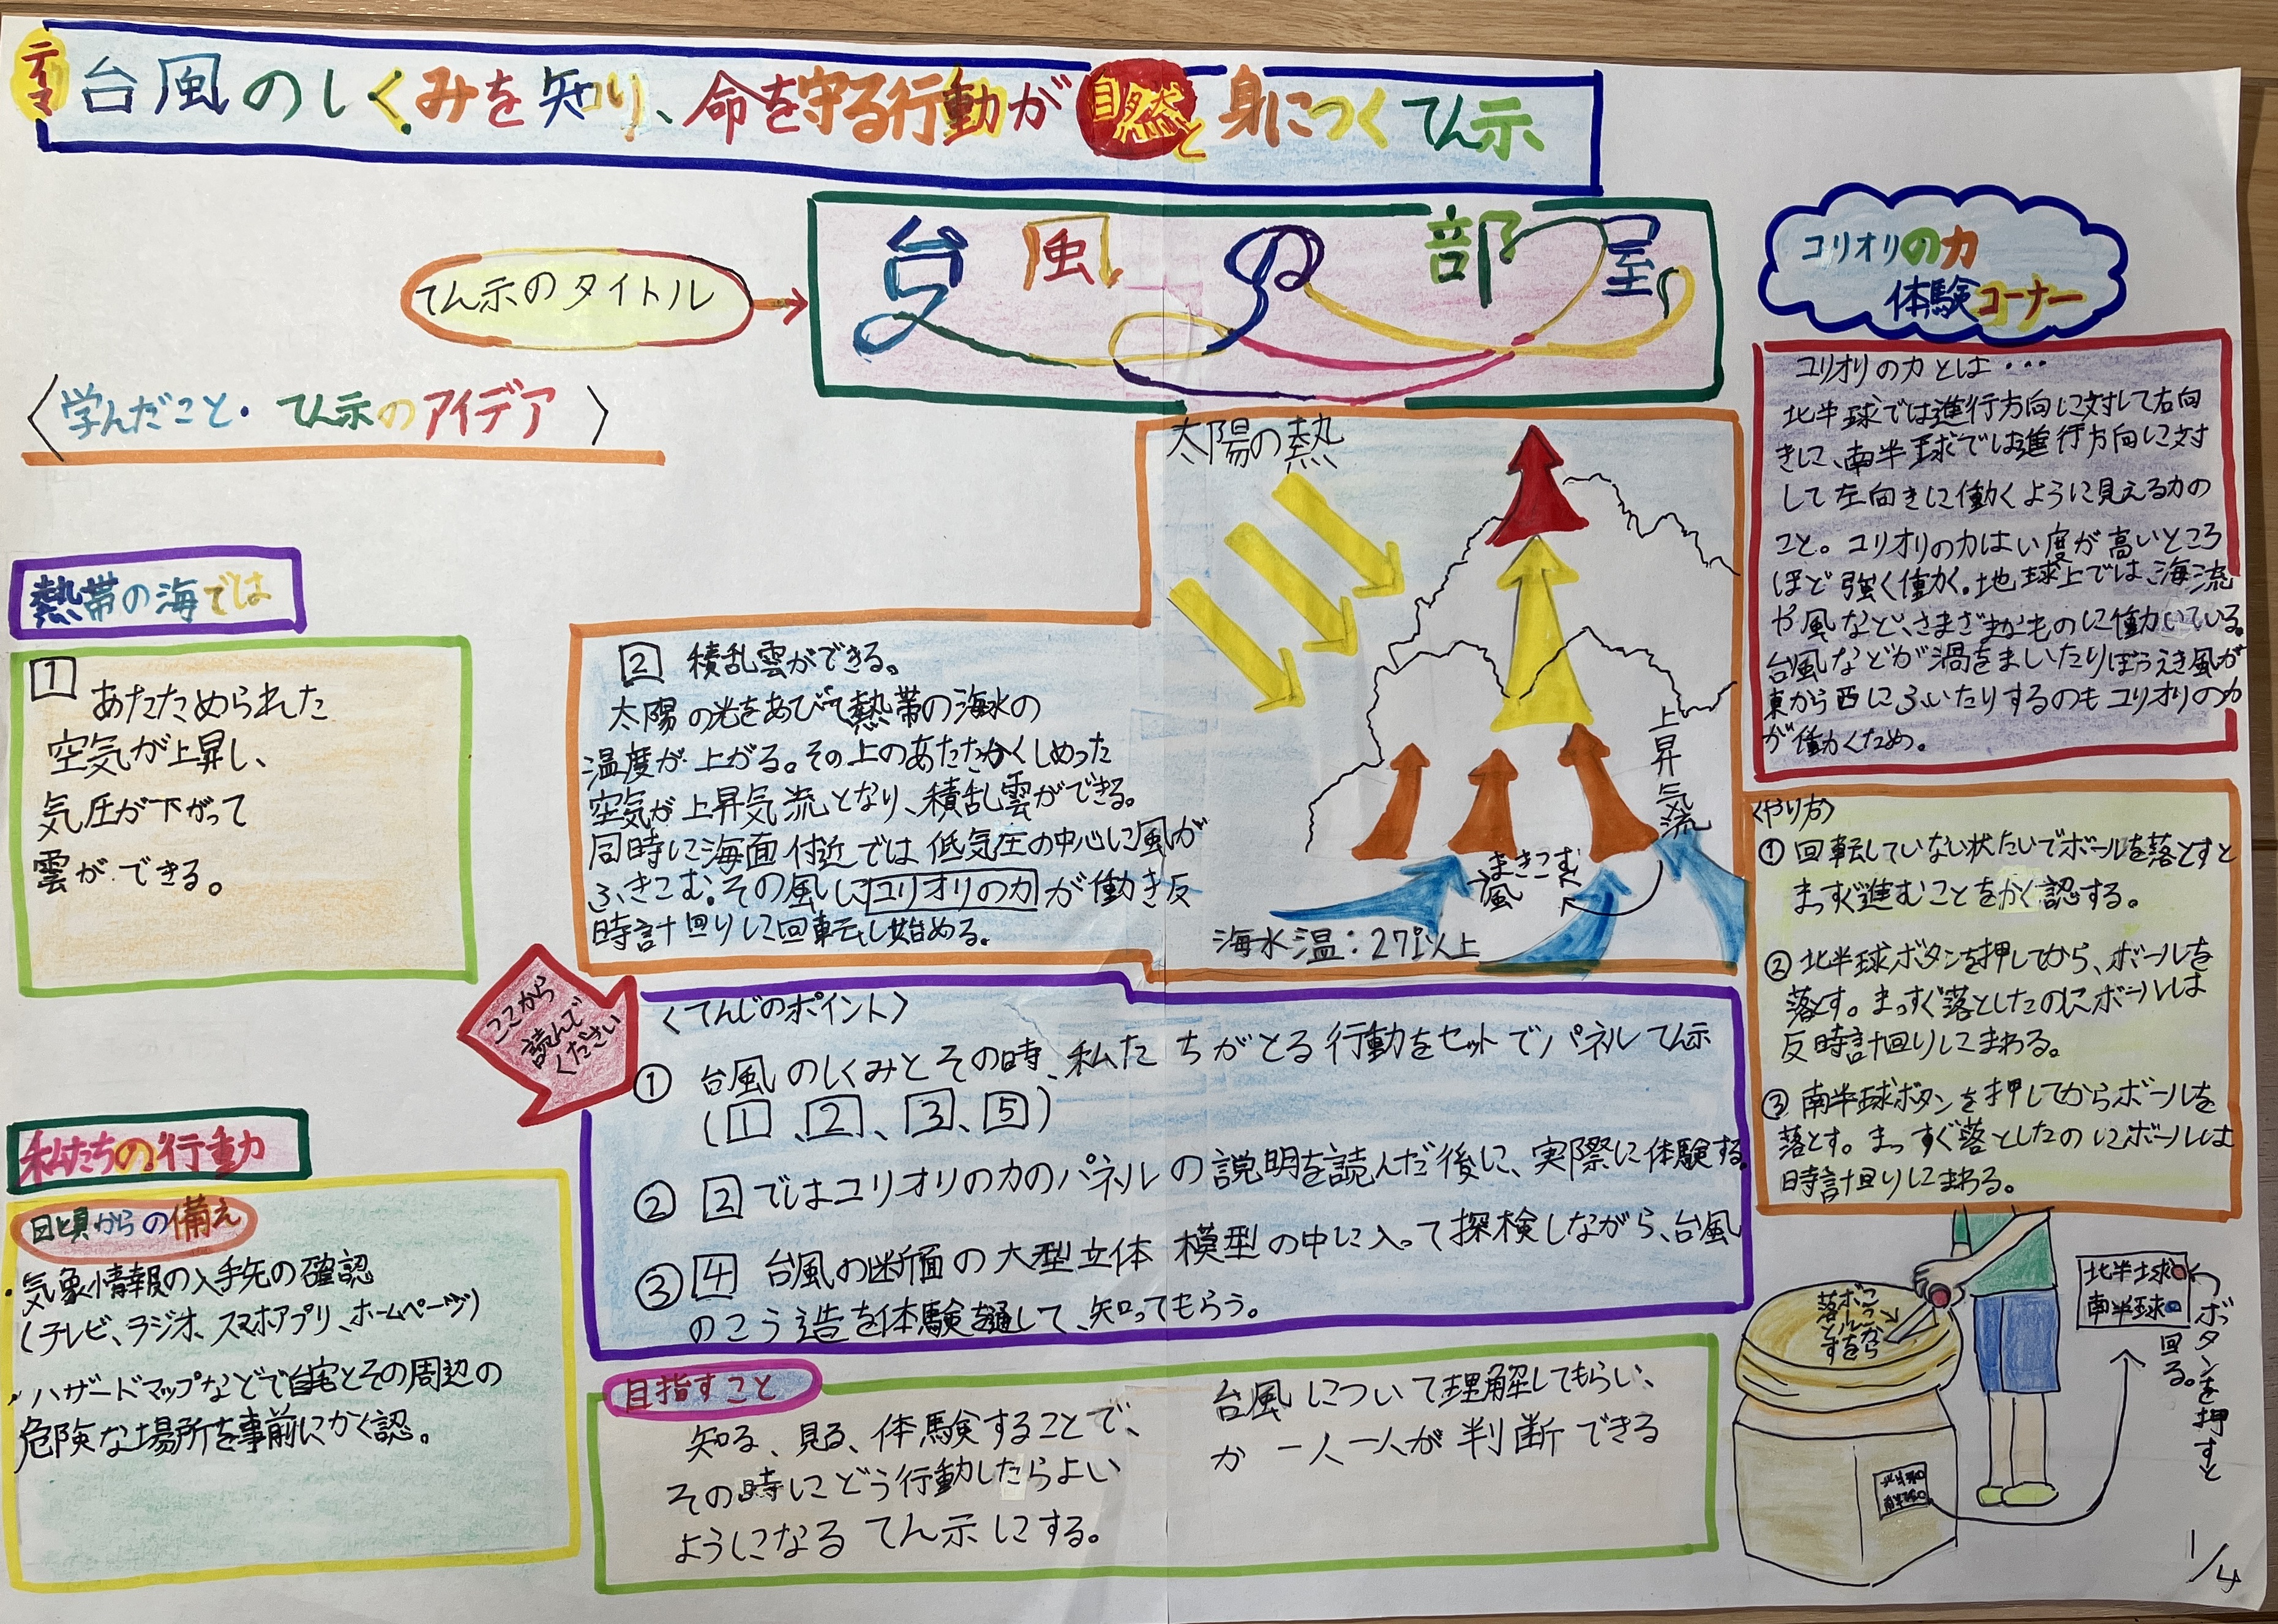 テーマ
台風のしくみを知り、命を守る行動が自然と身につくてん示
てん示のタイトル
台風の部屋
〈学んだこと・てん示のアイデア〉
熱帯の海では
1
あたためられた
空気が上昇し、
気圧が下がって
雲ができる。
2 積乱雲ができる。
太陽の光をあびて熱帯の海水の
温度が上がる。その上のあたたかくしめった
空気が上昇気流となり、積乱雲ができる。
同時に海面付近では低気圧の中心に風が
ふきこむ。その風にコリオリの力が働き反
時計回りに回転し始める。
太陽の熱
上昇気流
まきこむ
風
海水温：27℃以上
ここから
読んで
ください
〈てんじのポイント〉
① 台風のしくみとその時、私たちがとる行動をセットでパネルてん示
(1、2、3、5)
② 2ではコリオリの力のパネルの説明を読んだ後に、実際に体験する。
③ 4 台風の断面の大型立体模型の中に入って探検しながら、台風
のこう造を体験を通して、知ってもらう。
私たちの行動
日頃からの備え
・気象情報の入手先の確認
(テレビ、ラジオ、スマホアプリ、ホームページ)
・ハザードマップなどで自宅とその周辺の
危険な場所を事前にかく認。
目指すこと
知る、見る、体験することで、台風について理解してもらい、
その時にどう行動したらよいか一人一人が判断できる
ようになるてん示にする。
コリオリの力
体験コーナー
コリオリの力とは・・・
北半球では進行方向に対して右向
きに、南半球では進行方向に対
して左向きに働くように見える力の
こと。コリオリの力はい度が高いところ
ほど強く働く。地球上では、海流
や風など、さまざまなものに働いている。
台風などが渦をまいたりぼうえき風が
東から西にふいたりするのもコリオリの力
が働くため。
〈やり方〉
① 回転していない状たいでボールを落とすと
まっすぐ進むことをかく認する。
② 北半球ボタンを押してから、ボールを
落とす。まっすぐ落としたのにボールは
反時計回りにまわる。
③ 南半球ボタンを押してからボールを
落とす。まっすぐ落としたのにボールは
時計回りにまわる。
ここから
ボールを
落とす
北半球
南半球
ボタンを押すと
回る。
北半球
南半球
1/4